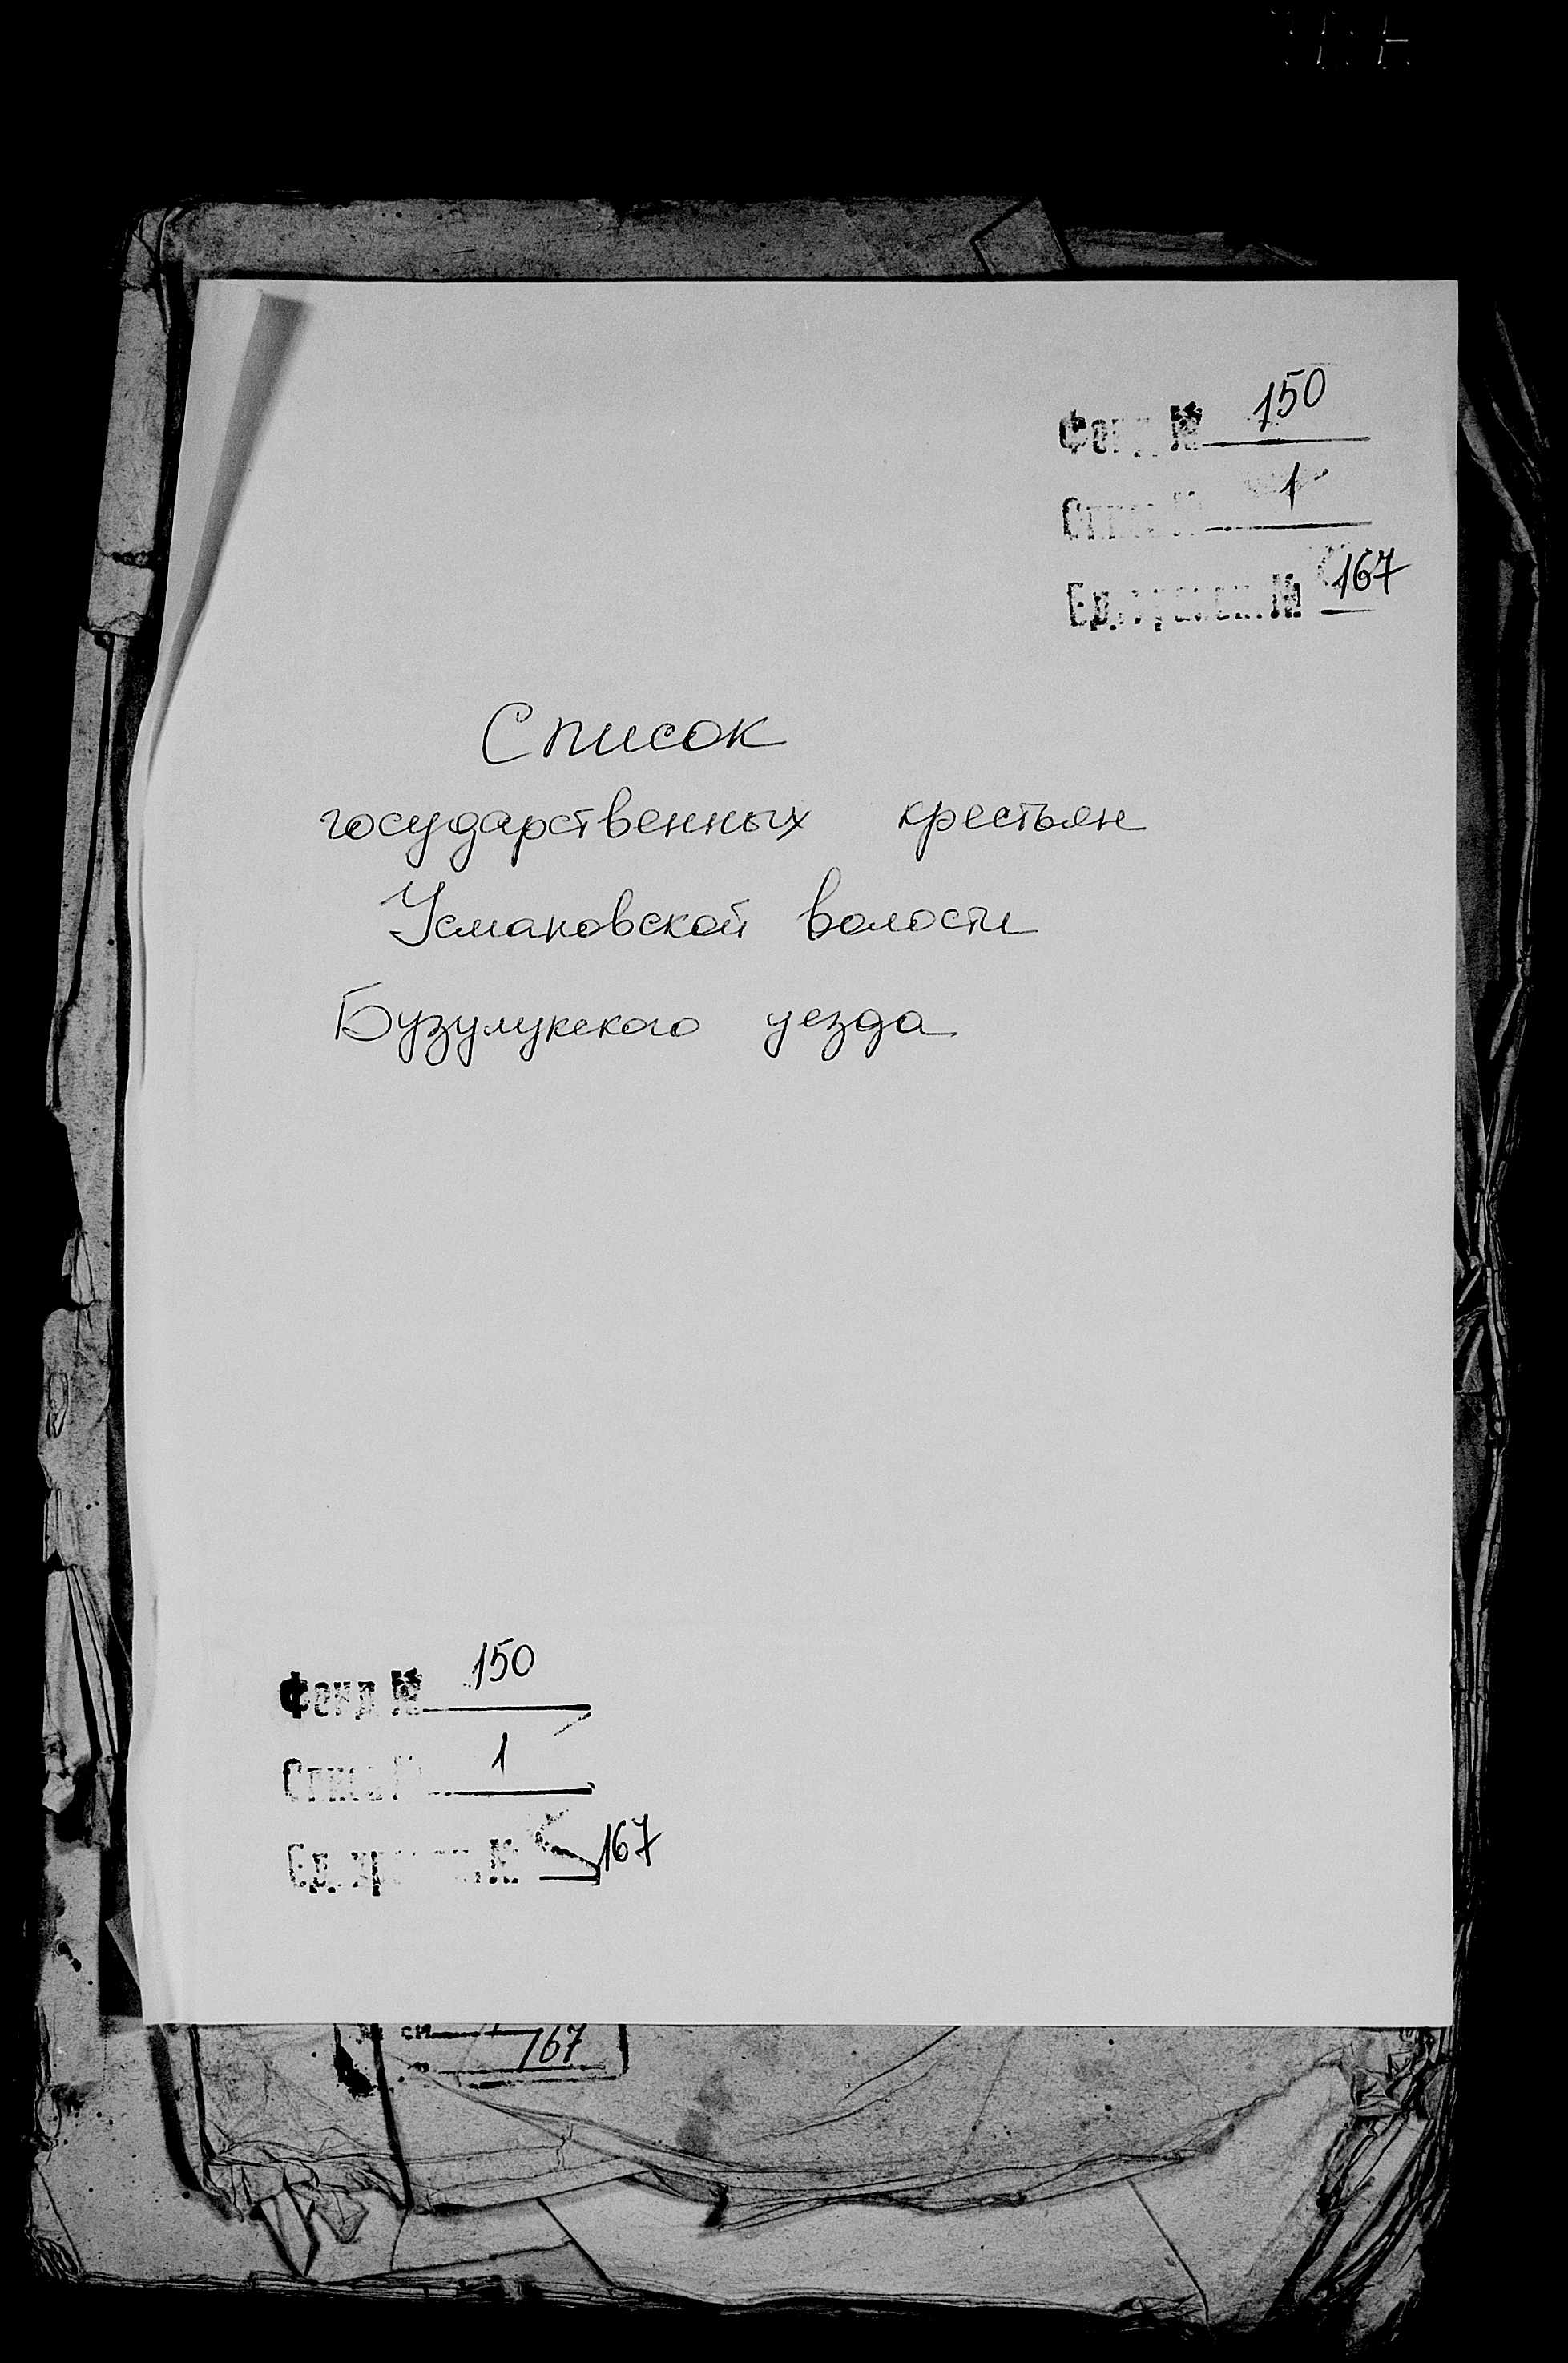 Фонд № 150
Опись № 1
Ед. хранен. № 167
Список
государственных крестьян
Усмановской волости
Бузулукского уезда
Фонд № 150
Опись № 1
Ед. хранен. № 167
167